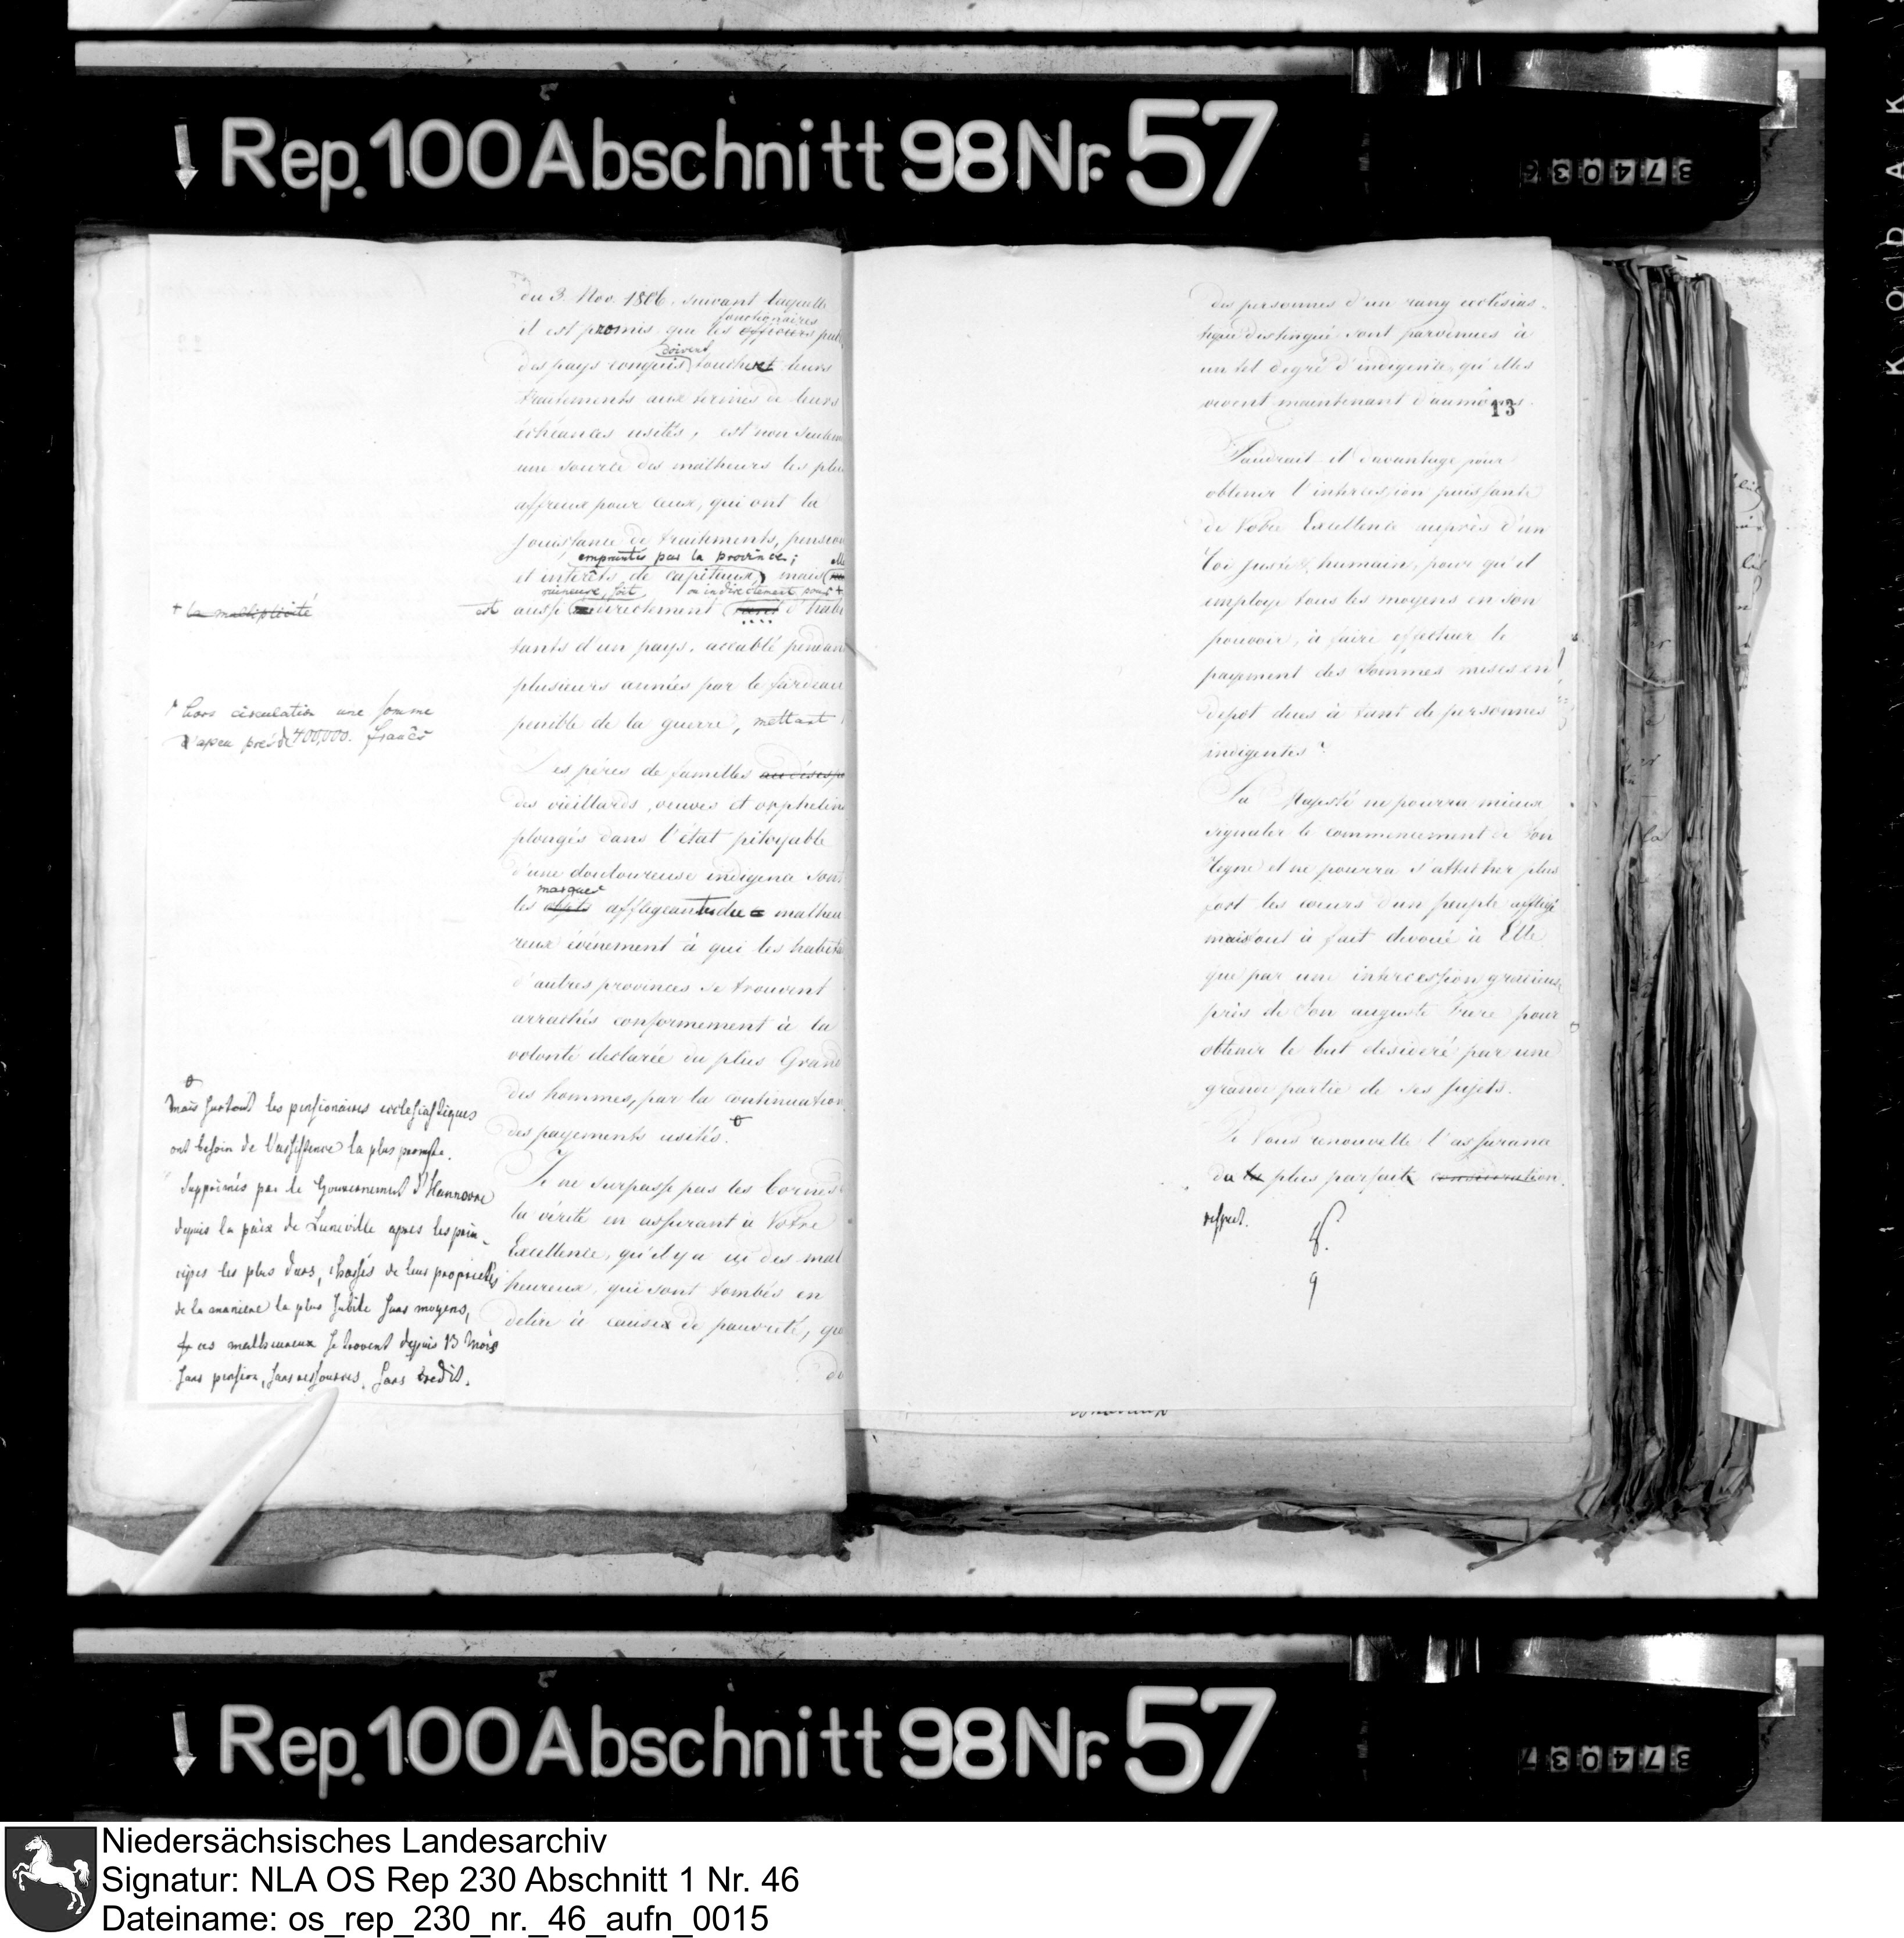 Rep. 100 Abschnitt 98 Nr. 57
374036
du 3. Nov. 1806. suivant laquelle
fonctionaires
il est promis que les officiers pub
doivent
des pays conquis toucher leurs
traitements aux termes de leurs
échéances usités, est non seulem
une source des malheurs les plus
affreux pour ceux, qui ont la
jouissance de traitements, pension
empruntés par la province; elle
et intérêts de capitaux, mais
ruineuse, soit ou indirectement pour +
est aussi directement d'habi
tants d'un pays, accablé pendant
plusieurs années par le fardeau
penible de la guerre, mettant
Les péres de familles au désesp
des vieillards, veuves et orphelins
plongés dans l'état pitoyable
d'une douloureuse indigence sont
marques
les objets affligeants de malheu
reux événement à qui les habita
d'autres provinces se trouvent
arrachés conformement à la
volonté declarée du plus Grand
des hommes, par la continuation
des payements usités.
Je ne surpasse pas les bornes
la vérité en assurant à Votre
Excellence, qu'il y a ici des mal
heureux, qui sont tombés en
delire à cause de pauvreté, que
+ la multiplicité
hors circulation une somme
d'apeu près de 400,000. francs
mais surtout les pensionaires ecclesiastiques
ont besoin de l'assistence la plus prompte.
Supprimés par le Gouvernement d'Hannovre
depuis la paix de Luneville apres les prin-
cipes les plus durs, chassés de leur proprietés
de la maniere la plus subite sans moyens,
ces malheureux se trovent depuis 13 mois
sans pension, sans ressources, sans credit.
des personnes d'un rang ecclésias-
tique distingué sont parvenues à
un tel degré d'indigence, qu'elles
vivent maintenant d'aumônes.
13
Faudrait-il davantage pour
obtenir l'intercession puissante
de Votre Excellence auprès d'un
Roi juste & humain, pour qu'il
employe tous les moyens en son
pouvoir, à faire effectuer le
payement des sommes mises en
depot dues à tant de personnes
indigentes?
Sa Majesté ne pourra mieux
signaler le commencement de Son
Regne et ne pourra s'attacher plus
fort les coeurs d'un peuple affligé
mais tout à fait devoué à Elle
que par une intercession gracieuse
près de Son auguste Frere pour
obtenir le but desideré par une
grande partie de ses sujets.
Je Vous renouvelle l'assurance
du la plus parfaite consideration.
respect.
Rep. 100 Abschnitt 98 Nr. 57
374037
KODAK
Niedersächsisches Landesarchiv
Signatur: NLA OS Rep 230 Abschnitt 1 Nr. 46
Dateiname: os_rep_230_nr._46_aufn_0015